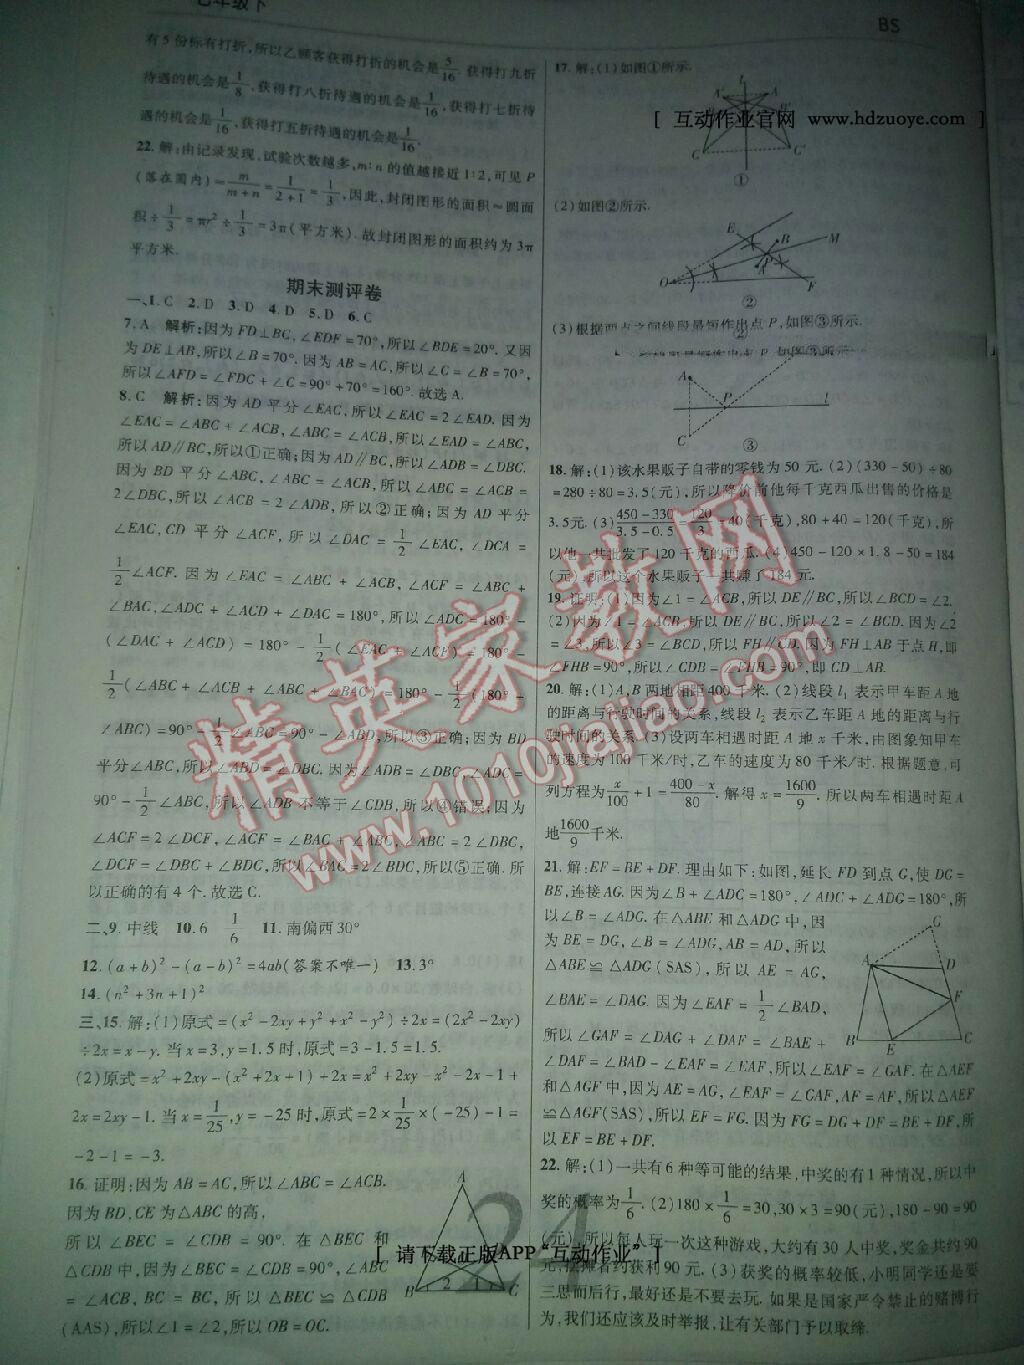 七年级下
BS
有5份标有打折,所以乙顾客获得打折的机会是5/16.获得打九折
待遇的机会是1/8,获得打八折待遇的机会是1/16,获得打七折待
遇的机会是1/16,获得打五折待遇的机会是1/16.
22.解:由记录发现,试验次数越多,m:n的值越接近1:2,可见P
(落在圆内)=m/(m+n)=1/(2+1)=1/3,因此,封闭图形的面积≈圆面
积÷1/3=πr²÷1/3=3π(平方米).故封闭图形的面积约为3π
平方米.
期末测评卷
一、1.C 2.D 3.D 4.D 5.D 6.C
7.A 解析:因为FD⊥BC,∠EDF=70°,所以∠BDE=20°.又因
为DE⊥AB,所以∠B=70°.因为AB=AC,所以∠C=∠B=70°,
所以∠AFD=∠FDC+∠C=90°+70°=160°.故选A.
8.C 解析:因为AD平分∠EAC,所以∠EAC=2∠EAD.因为
∠EAC=∠ABC+∠ACB,∠ABC=∠ACB,所以∠EAD=∠ABC,
所以AD∥BC,所以①正确;因为AD∥BC,所以∠ADB=∠DBC.
因为BD平分∠ABC,∠ABC=∠ACB,所以∠ABC=∠ACB=
2∠DBC,所以∠ACB=2∠ADB,所以②正确;因为AD平分
∠EAC,CD平分∠ACF,所以∠DAC=1/2∠EAC,∠DCA=
1/2∠ACF.因为∠EAC=∠ABC+∠ACB,∠ACF=∠ABC+
∠BAC,∠ADC+∠ACD+∠DAC=180°,所以∠ADC=180°-
(∠DAC+∠ACD)=180°-1/2(∠EAC+∠ACF)=180°-
1/2(∠ABC+∠ACB+∠ABC+∠BAC)=180°-1/2(180°-
∠ABC)=90°-1/2∠ABC=90°-∠ABD,所以③正确;因为BD
平分∠ABC,所以∠ABD=∠DBC.因为∠ADB=∠DBC,∠ADC=
90°-1/2∠ABC,所以∠ADB不等于∠CDB,所以④错误;因为
∠ACF=2∠DCF,∠ACF=∠BAC+∠ABC,∠ABC=2∠DBC,
∠DCF=∠DBC+∠BDC,所以∠BAC=2∠BDC,所以⑤正确.所
以正确的有4个.故选C.
二、9.中线 10.6 1/6 11.南偏西30°
12.(a+b)²-(a-b)²=4ab(答案不唯一) 13.3ⁿ
14.(n²+3n+1)²
三、15.解:(1)原式=(x²-2xy+y²+x²-y²)÷2x=(2x²-2xy)
÷2x=x-y.当x=3,y=1.5时,原式=3-1.5=1.5.
(2)原式=x²+2xy-(x²+2x+1)+2x=x²+2xy-x²-2x-1+
2x=2xy-1.当x=1/25,y=-25时,原式=2×1/25×(-25)-1=
-2-1=-3.
16.证明:因为AB=AC,所以∠ABC=∠ACB.
因为BD,CE为△ABC的高,
所以∠BEC=∠CDB=90°.在△BEC和
△CDB中,因为∠BEC=∠CDB,∠ABC
=∠ACB,BC=BC,所以△BEC≌△CDB
(AAS),所以∠1=∠2,所以OB=OC.
A
B 2 1 C
17.解:(1)如图①所示.
l
A' A
C C'
①
[ 互动作业官网 www.hdzuoye.com ]
(2)如图②所示.
E B M
P
A
O F
②
(3)根据两点之间线段最短作出点P,如图③所示.
A
P l
C
③
18.解:(1)该水果贩子自带的零钱为50元.(2)(330-50)÷80
=280÷80=3.5(元),所以降价前他每千克西瓜出售的价格是
3.5元.(3)(450-330)/(3.5-0.5)=120/3=40(千克),80+40=120(千克),所
以他一共批发了120千克的西瓜.(4)450-120×1.8-50=184
(元).所以这个水果贩子一共赚了184元.
19.证明:(1)因为∠1=∠ACB,所以DE∥BC,所以∠BCD=∠2.
(2)因为∠1=∠ACB,所以DE∥BC,所以∠2=∠BCD.因为∠2
=∠3,所以∠3=∠BCD,所以FH∥CD.因为FH⊥AB于点H,即
∠FHB=90°,所以∠CDB=∠FHB=90°,即CD⊥AB.
20.解:(1)A,B两地相距400千米.(2)线段l₁表示甲车距A地
的距离与行驶时间的关系,线段l₂表示乙车距A地的距离与行
驶时间的关系.(3)设两车相遇时距A地x千米,由图象知甲车
的速度为100千米/时,乙车的速度为80千米/时.根据题意,可
列方程为x/100+1=(400-x)/80.解得x=1600/9.所以两车相遇时距A
地1600/9千米.
21.解:EF=BE+DF.理由如下:如图,延长FD到点G,使DG=
BE,连接AG.因为∠B+∠ADC=180°,∠ADC+∠ADG=180°,
所以∠B=∠ADG.在△ABE和△ADG中,因
为BE=DG,∠B=∠ADG,AB=AD,所以
△ABE≌△ADG(SAS),所以AE=AG,
∠BAE=∠DAG.因为∠EAF=1/2∠BAD,
所以∠GAF=∠DAG+∠DAF=∠BAE+
∠DAF=∠BAD-∠EAF=∠EAF,所以∠EAF=∠GAF.在△AEF
和△AGF中,因为AE=AG,∠EAF=∠GAF,AF=AF,所以△AEF
≌△AGF(SAS),所以EF=FG.因为FG=DG+DF=BE+DF,所
以EF=BE+DF.
G
A D
F
B E C
22.解:(1)一共有6种等可能的结果,中奖的有1种情况,所以中
奖的概率为1/6.(2)180×1/6=30,30×3=90(元),180-90=90
(元).所以每人玩一次这种游戏,大约有30人中奖,奖金共约90
元,摆摊者约获利90元.(3)获奖的概率较低,小明同学还是要
三思而后行,最好还是不要去玩.如果是国家严令禁止的赌博行
为,我们还应该及时举报,让有关部门予以取缔.
24
[ 请下载正版APP“互动作业” ]
精英家教网
www.1010jiajiao.com